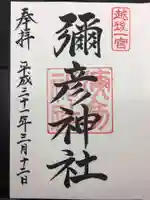 越後一宮
奉拝
彌彦神社
平成三十一年三月十二日